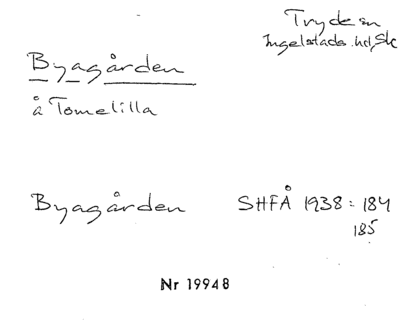 Tryde sn
Ingelstads hd, Sk
Byagården
å Tomelilla
Byagården SHFÅ 1938: 184
185
Nr 19948